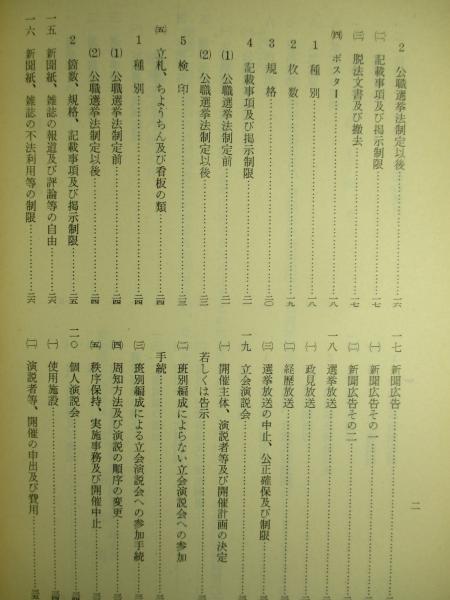 2 公職選挙法制定以後……一六
(二) 記載事項及び掲示制限……一七
(三) 脱法文書及び撤去……一七
(四) ポスター……一八
1 種別……一八
2 枚数……一九
3 規格……二〇
4 記載事項及び掲示制限……二一
(1) 公職選挙法制定前……二一
(2) 公職選挙法制定以後……二二
5 検印……二三
(五) 立札、ちようちん及び看板の類……二四
1 種別……二四
(1) 公職選挙法制定前……二四
(2) 公職選挙法制定以後……二四
2 箇数、規格、記載事項及び掲示制限……二五
一五 新聞紙、雑誌の報道及び評論等の自由……二六
一六 新聞紙、雑誌の不法利用等の制限……二六
二
一七 新聞広告
(一) 新聞広告その一
(二) 新聞広告その二
一八 選挙放送
(一) 政見放送
(二) 経歴放送
(三) 選挙放送の中止、公正確保及び制限
一九 立会演説会
(一) 開催主体、演説者等及び開催計画の決定
若しくは告示
(二) 班別編成によらない立会演説会への参加
手続
(三) 班別編成による立会演説会への参加手続
(四) 周知方法及び演説の順序の変更
(五) 秩序保持、実施事務及び開催中止
二〇 個人演説会
(一) 使用施設
(二) 演説者等、開催の申出及び費用